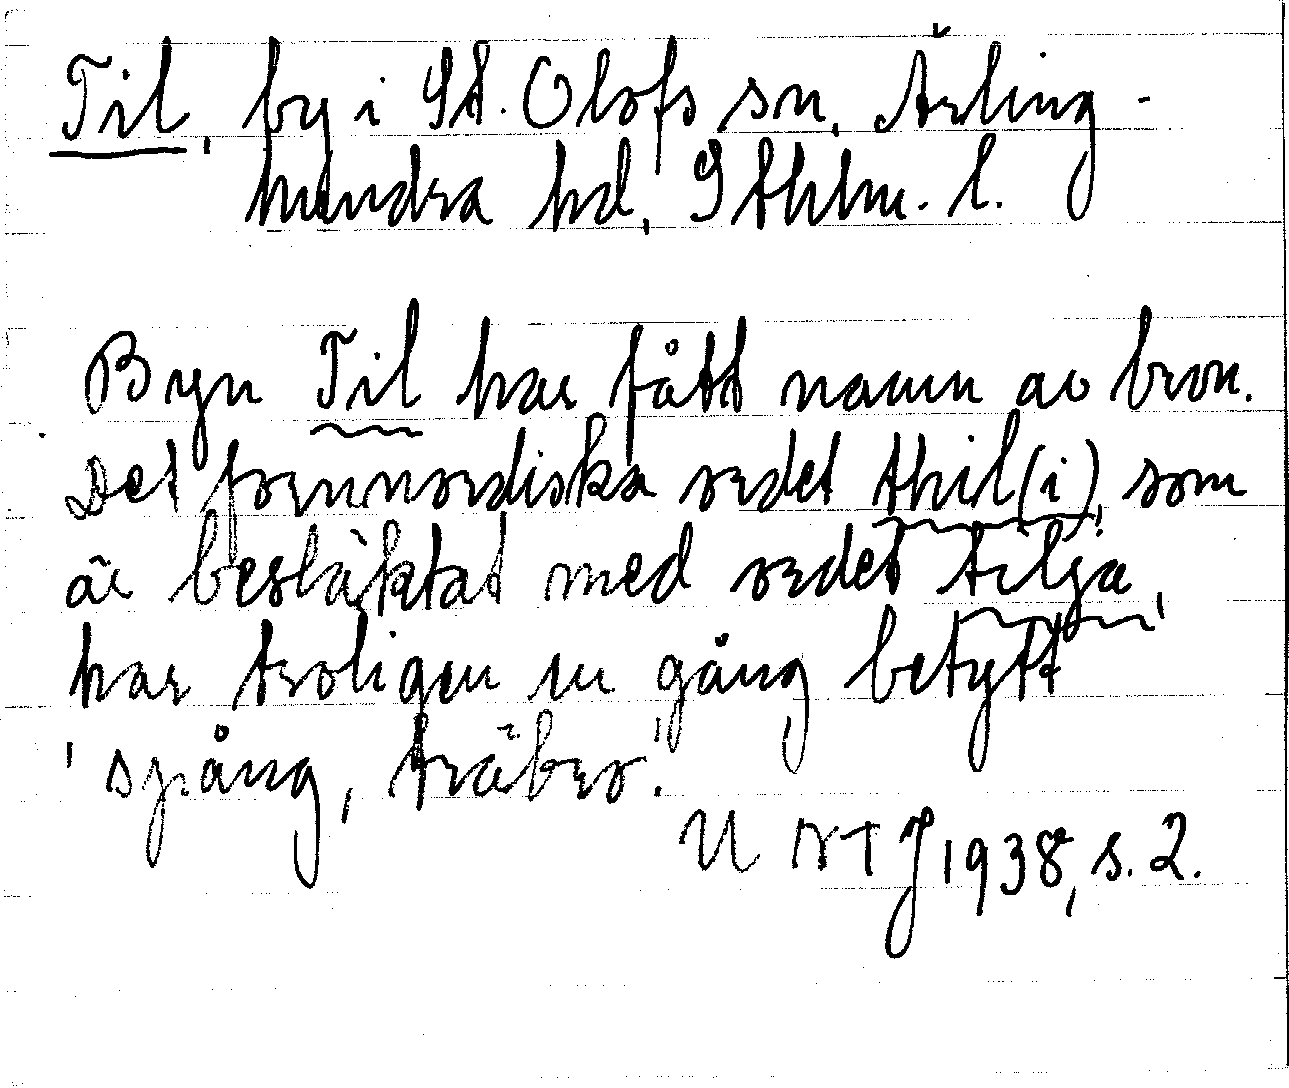 Til, by i St. Olofs sn, Ärling-
hundra hd, Sthlm. l.
Byn Til har fått namn av bron.
Det fornnordiska ordet thil(i), som
är besläktat med ordet tilja,
har troligen en gång betytt
'spång, träbro'.
UNTJ 1938, s. 2.